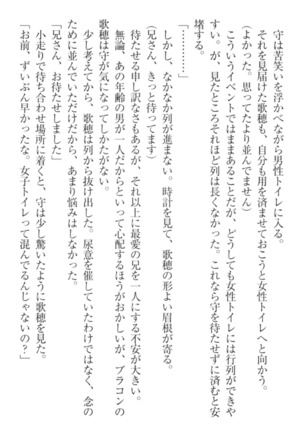 守は苦笑いを浮かべながら男性トイレに入る。
それを見届けた歌穂も、自分も用を済ませておこうと女性トイレへと向かう。
(よかった。思ってたより並んでません)
こういうイベントではままあることだが、どうしても女性トイレには行列ができや
すい。が、見たところそれほど列は長くなかった。これなら守を待たせずに済むと安
堵する。
「………」
しかし、なかなか列が進まない。時計を見て、歌穂の形よい眉根が寄る。
(兄さん、きっと待ってます)
待たせる申し訳なさもあるが、それ以上に最愛の兄を一人にする不安が大きい。
無論、あの年齢の男が一人だからといって心配するほうがおかしいが、ブラコンの
歌穂は守が気になってしかたがない。
少し考えてから、歌穂は列から抜け出した。尿意を催していたわけではなく、念の
ために並んでいただけだから、あまり悩みはしなかった。
「兄さん、お待たせしました」
小走りで待ち合わせ場所に着くと、守は少し驚いたように歌穂を見た。
「お前、ずいぶん早かったな。女子トイレって混んでるんじゃないの？」